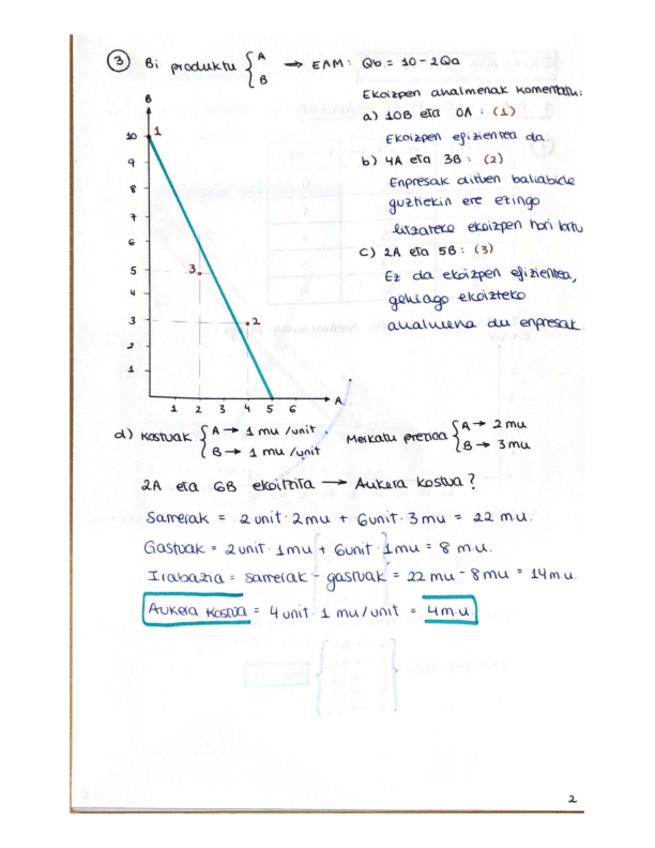 3 Bi produktu { A B → EAM: Qb = 10 - 2Qa
Ekoizpen ahalmenak komentatu:
a) 10B eta 0A : (1)
Ekoizpen efizientea da.
b) 4A eta 3B : (2)
Enpresak dituen baliabide
guztiekin ere ezingo
litzateke ekoizpen hori lortu
c) 2A eta 5B : (3)
Ez da ekoizpen efizientea,
gehiago ekoizteko
ahalmena du enpresak.
B
10 1
9
8
7
6
5 3
4
3 2
2
1
1 2 3 4 5 6 A
d) Kostuak { A → 1 mu /unit . Merkatu prezioa { A → 2 mu
B → 1 mu /unit B → 3 mu
2A eta 6B ekoiztita → Aukera kostua?
Sarrerak = 2 unit · 2 mu + 6 unit · 3 mu = 22 m.u.
Gastuak = 2 unit · 1 mu + 6 unit · 1 mu = 8 m.u.
Irabazia = sarrerak - gastuak = 22 mu - 8 mu = 14 m.u.
Aukera kostua = 4 unit · 1 mu / unit = 4 m.u.
2